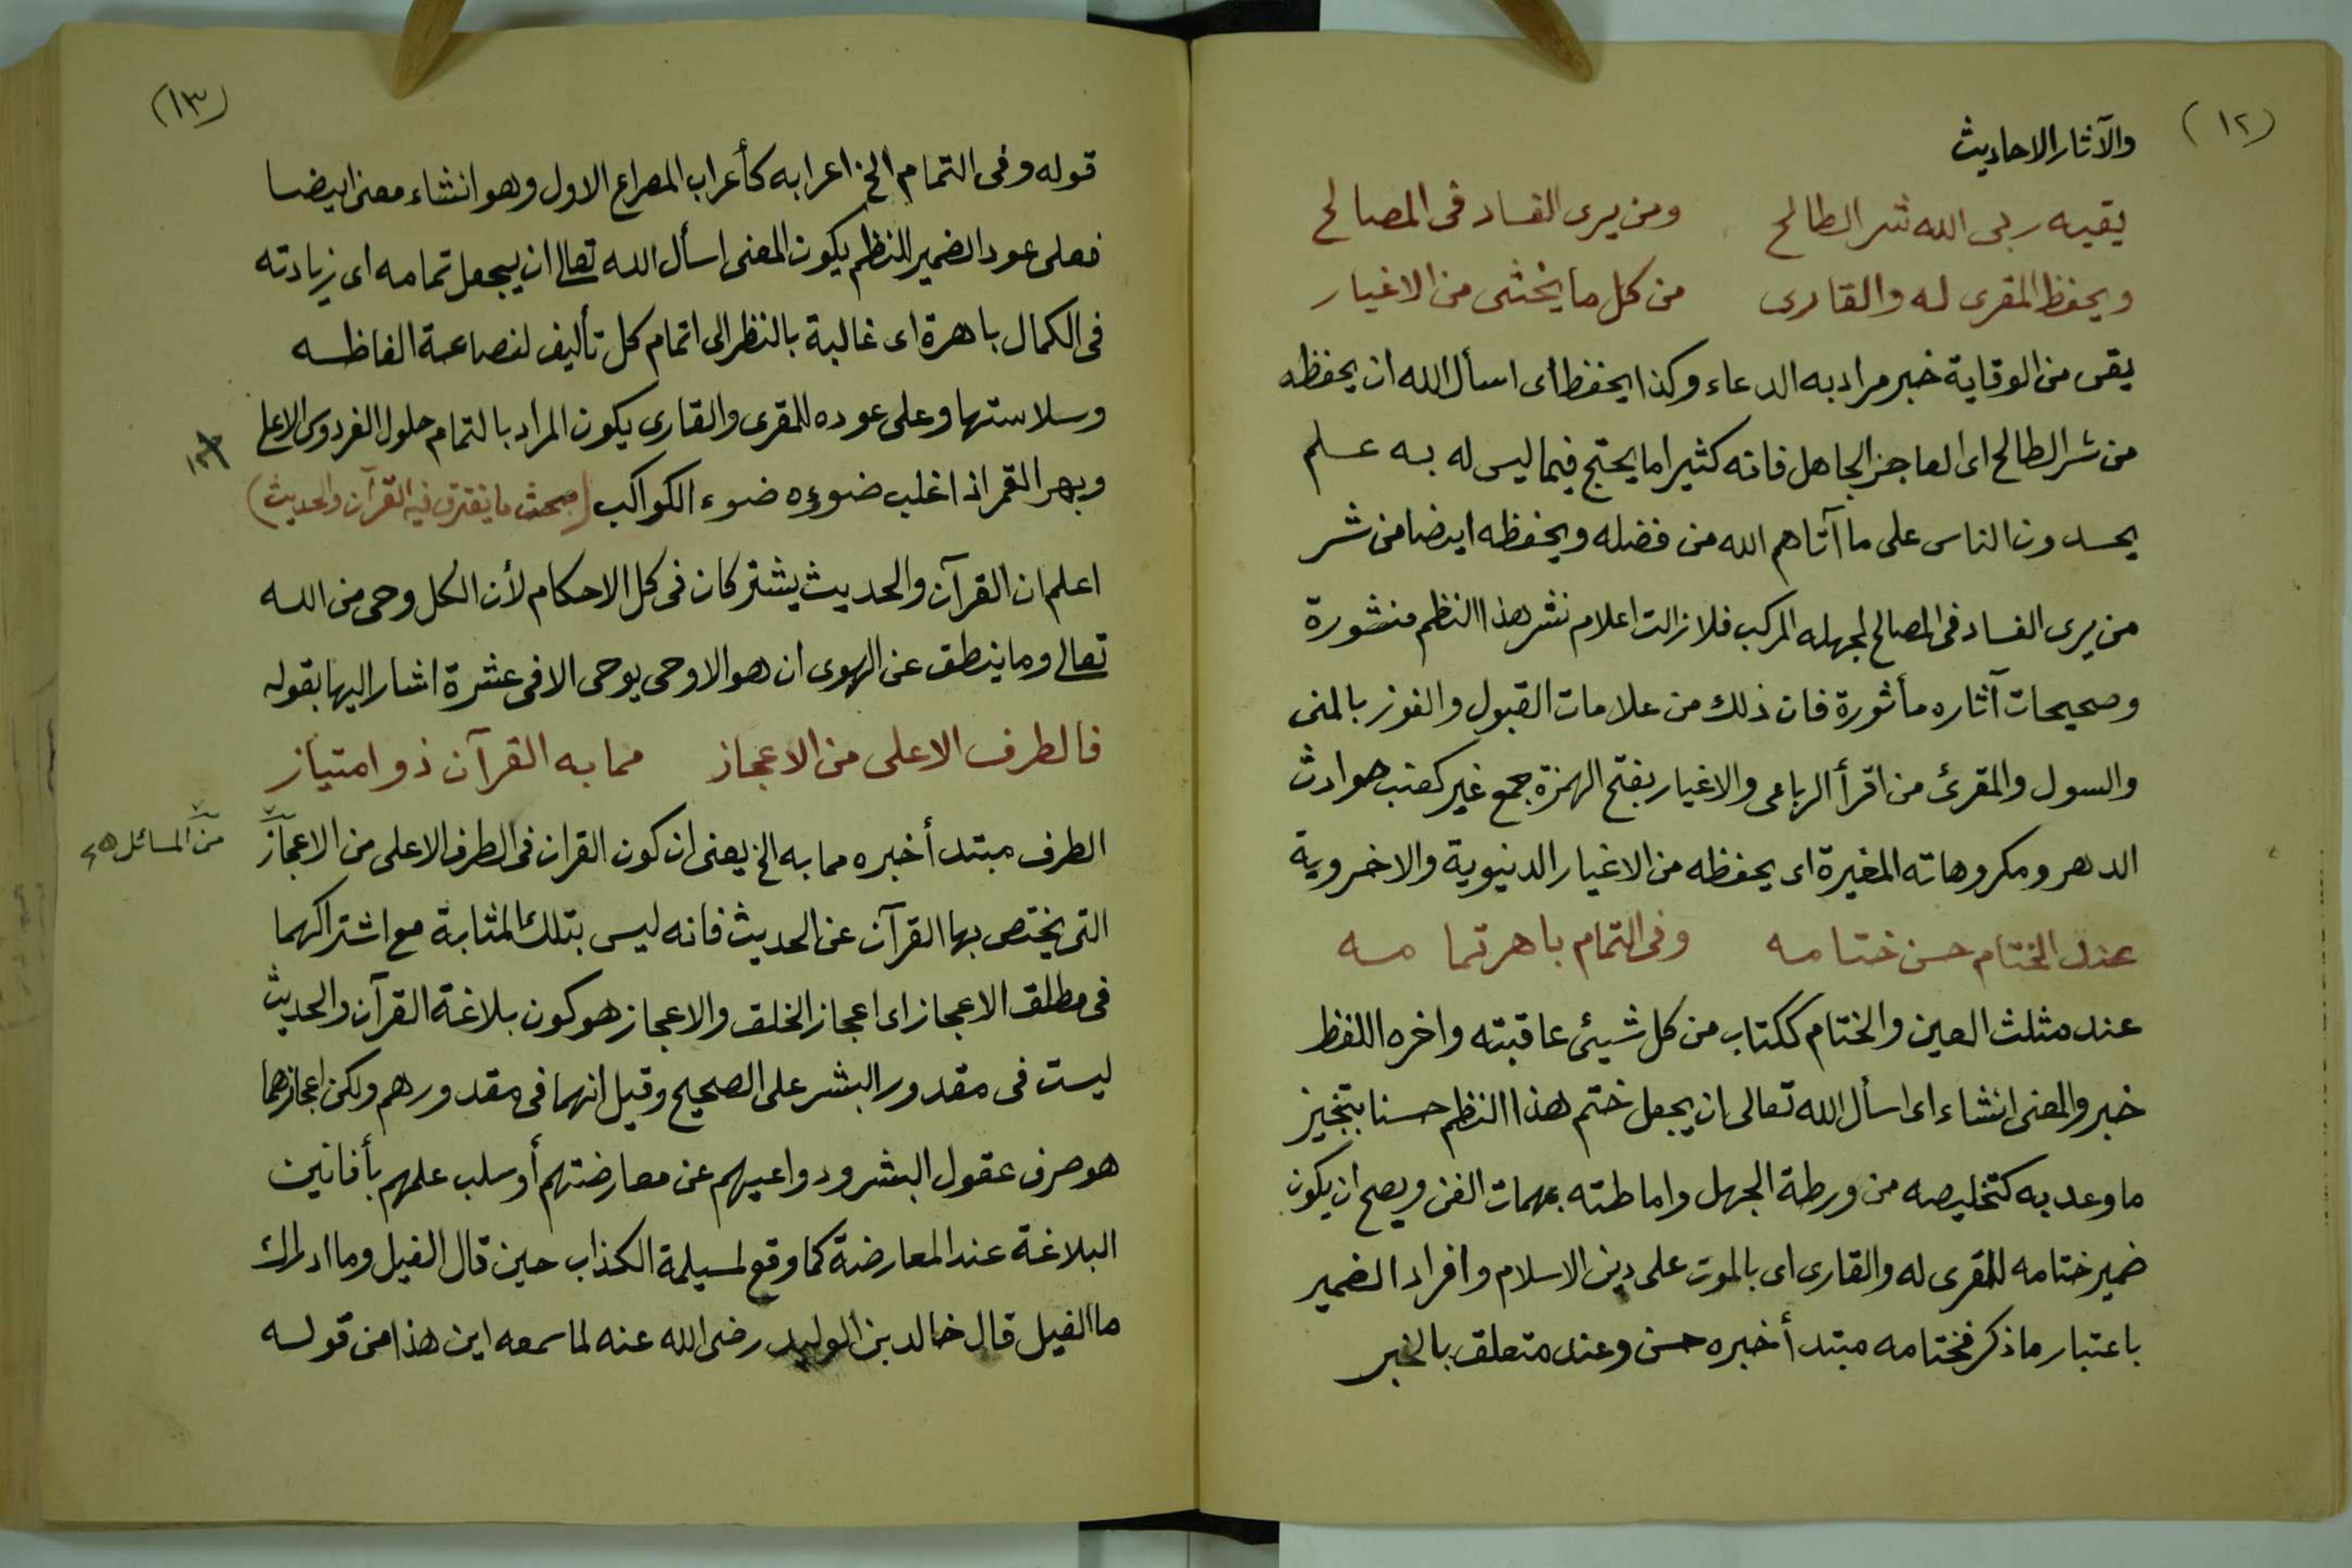 (١٢)
والآثار الاحاديث
يقيه ربى الله شر الطالح ومن يرى الفساد فى المصالح
ويحفظ المقرى له والقارى من كل ما يخشى من الاغيار
يقى من الوقاية خبر مراد به الدعاء وكذا يحفظ أى اسأل الله ان يحفظه
من شر الطالح اى العاجز الجاهل فانه كثيرا ما يحتج فيما ليس له به علم
يحسدون الناس على ما آتاهم الله من فضله ويحفظه ايضا من شر
من يرى الفساد فى المصالح لجهله المركب فلا زالت اعلام نشر هذا النظم منشورة
وصحيحات آثاره مأثورة فان ذلك من علامات القبول والفوز بالمنى
والسول والمقرئ من اقرأ الرباعى والاغيار بفتح الهمزة جمع غير كعنب حوادث
الدهر ومكروهاته المغيرة اى يحفظه من الاغيار الدنيوية والاخروية
عند الختام حسن ختامه وفى التمام باهر تمامه
عند مثلث العين والختام ككتاب من كل شيئ عاقبته واخره اللفظ
خبر والمعنى انشاء اى اسأل الله تعالى ان يجعل ختم هذا النظم حسنا بتنجيز
ما وعد به كتخليصه من ورطة الجهل واماطته بمهمات الفن ويصح ان يكون
ضمير ختامه للمقرى له والقارى اى بالموت على دين الاسلام وافراد الضمير
باعتبار ما ذكر فختامه مبتدأ خبره حسن وعند متعلق بالخبر
(١٣)
قوله وفى التمام الخ اعرابه كأعراب المصراع الاول وهو انشاء معنى ايضا
فعلى عود الضمير للنظم يكون المعنى اسأل الله تعالى ان يجعل تمامه اى زيادته
فى الكمال باهرة اى غالبة بالنظر الى اتمام كل تأليف لفصاحة الفاظه
وسلاستها وعلى عوده للمقرى والقارى يكون المراد بالتمام حلول الفردوس الاعلى
وبهر القمر اذا غلب ضوءه ضوء الكواكب (مبحث ما يفترق فيه القرآن والحديث)
اعلم ان القرآن والحديث يشتركان فى كل الاحكام لأن الكل وحى من الله
تعالى وما ينطق عن الهوى ان هو الا وحى يوحى الا فى عشرة اشار اليها بقوله
فالطرف الاعلى من الاعجاز مما به القرآن ذو امتياز
الطرف مبتدأ خبره مما به الخ يعنى ان كون القران فى الطرف الاعلى من الاعجاز
من المسائل
التى يختص بها القرآن عن الحديث فانه ليس بتلك المثابة مع اشتراكهما
فى مطلق الاعجاز اى اعجاز الخلق والاعجاز هو كون بلاغة القرآن والحديث
ليست فى مقدور البشر على الصحيح وقيل انهما فى مقدورهم ولكن اعجازهما
هو صرف عقول البشر ودواعيهم عن معارضتهم أو سلب علمهم بأفانين
البلاغة عند المعارضة كما وقع لمسيلمة الكذاب حين قال الفيل وما ادراك
ما الفيل قال خالد بن الوليد رضى الله عنه لما سمعه اين هذا من قوله